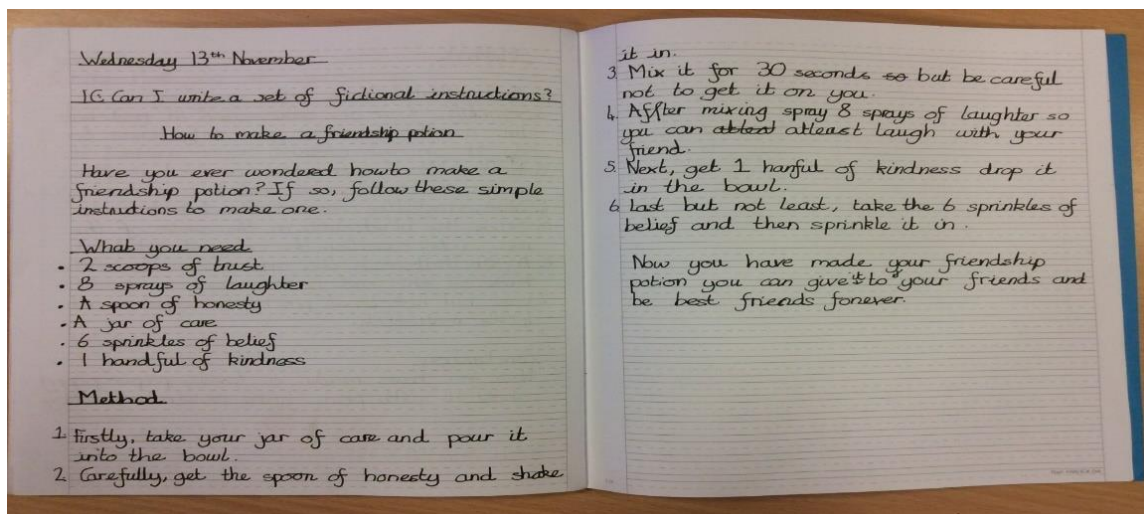 Wednesday 13th November
IC Can I write a set of fictional instructions?
How to make a friendship potion
Have you ever wondered howto make a
friendship potion? If so, follow these simple
instrutions to make one.
What you need
• 2 scoops of trust
• 8 sprays of laughter
• A spoon of honesty
• A jar of care
• 6 sprinkles of belief
• 1 handful of kindness
Method
1. Firstly, take your jar of care and pour it
into the bowl.
2. Carefully, get the spoon of honesty and shake
it in.
3. Mix it for 30 seconds so but be careful
not to get it on you.
4. Affter mixing spray 8 sprays of laughter so
you can atleast laugh with your
friend.
5. Next, get 1 hanful of kindness drop it
in the bowl.
6. Last but not least, take the 6 sprinkles of
belief and then sprinkle it in.
Now you have made your friendship
potion you can give it to your friends and
be best friends forever.